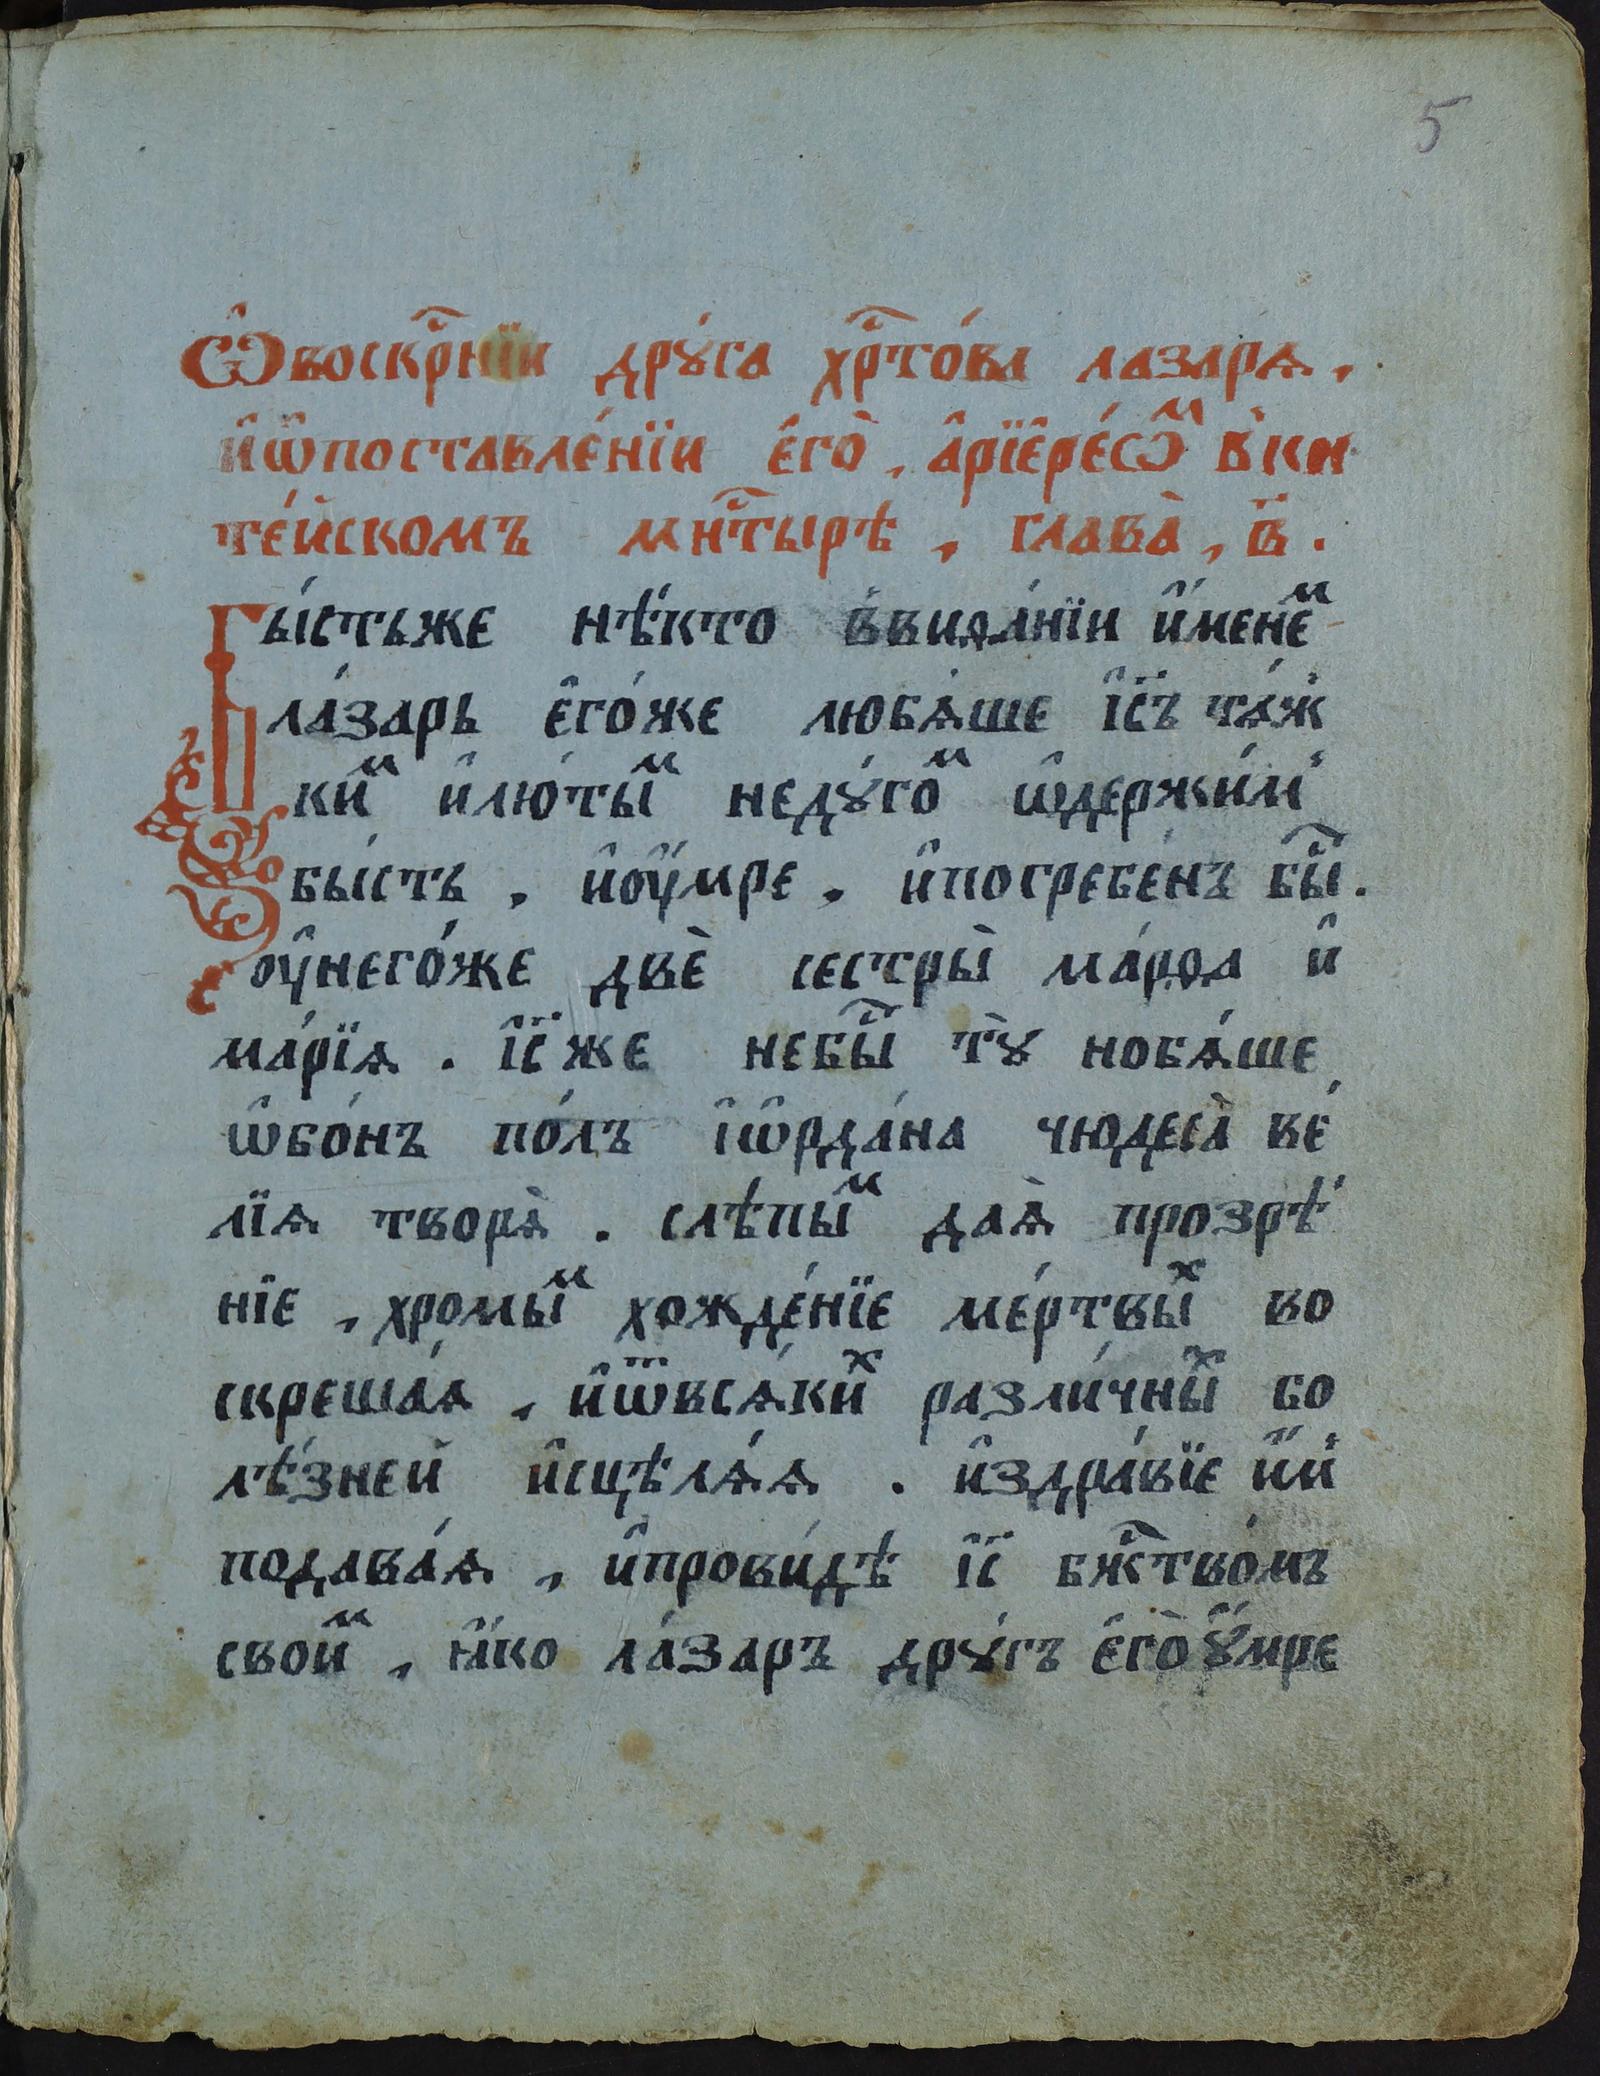 5
Ѡ҆воскр҇нїи дрꙋ́га хр҇то́ва лазарѧ ,
и҆ѡ҆поставле́нїи є҆го̀ , а҆рїе҆ре́ѡⷨ в̾ки
те́йскомъ мн҇тырѣ , глава̀ , в҃ .
Бы́стьже нѣ́кто в̾виѳа́нїи и҆́менеⷨ
ла́зарь є҆го́же любѧ́ше і҆с҃ъ тѧ́ж
киⷨ и҆лю́тыⷨ недꙋ́гоⷨ ѡ҆держи́м̾
бы́сть , и҆оу҆́мре , и҆погребе́нъ бы҇ .
оу҆него́же двѐ сестры̀ ма́рѳа и҆
ма́рїѧ . і҆с҃ же небы҇ тꙋ̀ нобѧ́ше
ѡ҆бо́нъ по́лъ і҆ѡ҆рда́на чюдеса̀ ве́
лїѧ творѧ̀ . слѣпыⷨ даѧ̀ прозрѣ́
нїе , хромыⷨ хожде́нїе ме́ртвыⷯ во
скреша́ѧ , и҆ѿвсѧ́киⷯ разли́чныⷯ бо
лѣ́зней и҆сцѣлѧ́ѧ . и҆здра́вїе и҆́м̾
подава́ѧ , и҆прови́дѣ і҆с҃ бж҇тво́мъ
своиⷨ , ꙗ҆́ко ла́заръ дрꙋ́гъ є҆го̀ ꙋ҆́мре